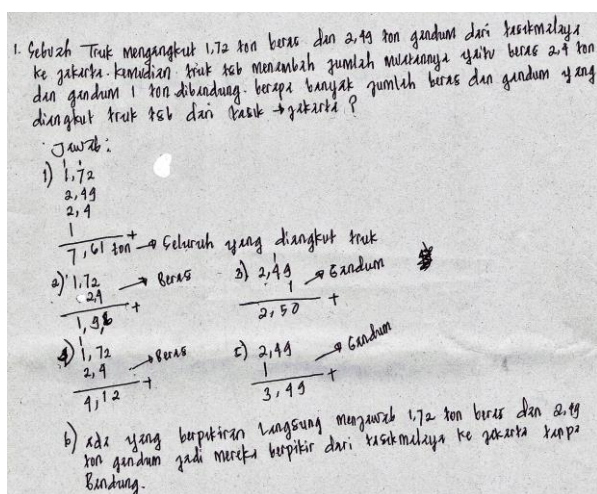 1. Sebuah Truk mengangkut 1,72 ton beras dan 2,49 ton gandum dari tasikmalaya
ke jakarta. kemudian truk tsb menambah jumlah muatannya yaitu beras 2,4 ton
dan gandum 1 ton dibandung. berapa banyak jumlah beras dan gandum yang
diangkut truk tsb dari tasik → jakarta ?
Jawab :
1) 1,72
2,49
2,4
1
+
7,61 ton → Seluruh yang diangkut truk
2) 1,72 → Beras 3) 2,49 → Gandum
24 + 1 +
1,96 2,50
4) 1,72 → Beras 5) 2,49 → Gandum
2,4 + 1 +
4,12 3,49
6) ada yang berpikiran Langsung menjawab 1,72 ton beras dan 2,49
ton gandum jadi mereka berpikir dari tasikmalaya ke jakarta tanpa
Bandung.